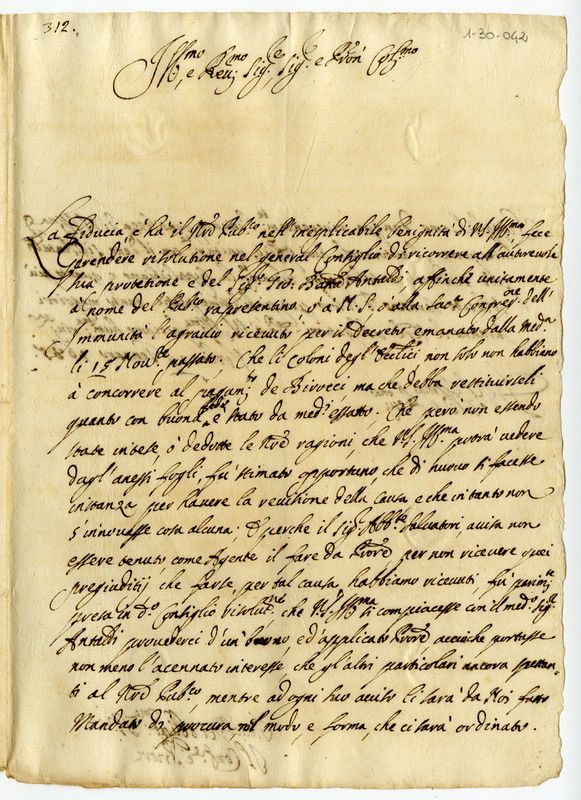 312.
1-30-042
Ill.mo e Rev.mo Sig.re Sig.re e Pron Col.mo
La Fiducia, c'hà il Nr̃o Pub.co nell'inesplicabile benignità di V.S. Ill.ma fece
prendere risolutione nel general Consiglio di ricorrere all'autorevole
sua protetione e del Sig.r Gio. Antaldi, affinche unitamente
à nome del Pub.co rapresentino, ò à N.S. ò alla Sac. Congreg.ne dell'
Immunità l'agravio ricevuto per il Decreto emanato dalla med.a
li 15 Nov.re passato. Che li Coloni degl'Eccl.ici non solo non habbiano
à concorrere al de Birrecci, ma che debba restituirseli
quanto con buona fede è stato da med.i essatto. Che però non essendo
state intese, ò dedotte le Nr̃e ragioni, che V.S. Ill.ma potrà vedere
dagl'anessi fogli, fù stimato opportuno, che di nuovo si facesse
instanza per havere la revisione della causa e che intanto non
s'innovasse cosa alcuna; E perche il Sig. Abb.te Salvatori, avisa non
essere tenuto come Agente il fare da per non ricevere quei
pregiuditij che forse per tal causa habbiamo ricevuti fù parim.te
presa in d.o Consiglio risolut.ne che V.S. Ill.ma si compiacesse con il med.o Sig.re
Antaldi provederci d'un buono, ed applicato accioche portasse
non meno l'acennato interesse, che gl'altri particolari ancora spettan-
ti al Nr̃o Pub.co, mentre ad ogni suo aviso li sarà da Noi fatto
Mandato di procura, nel modo, e forma, che ci sarà ordinato.